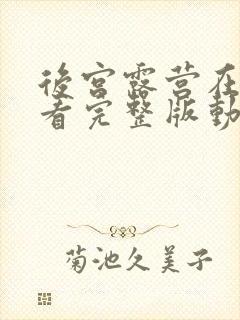 後宮露营在
看完整版動
菊池久美子